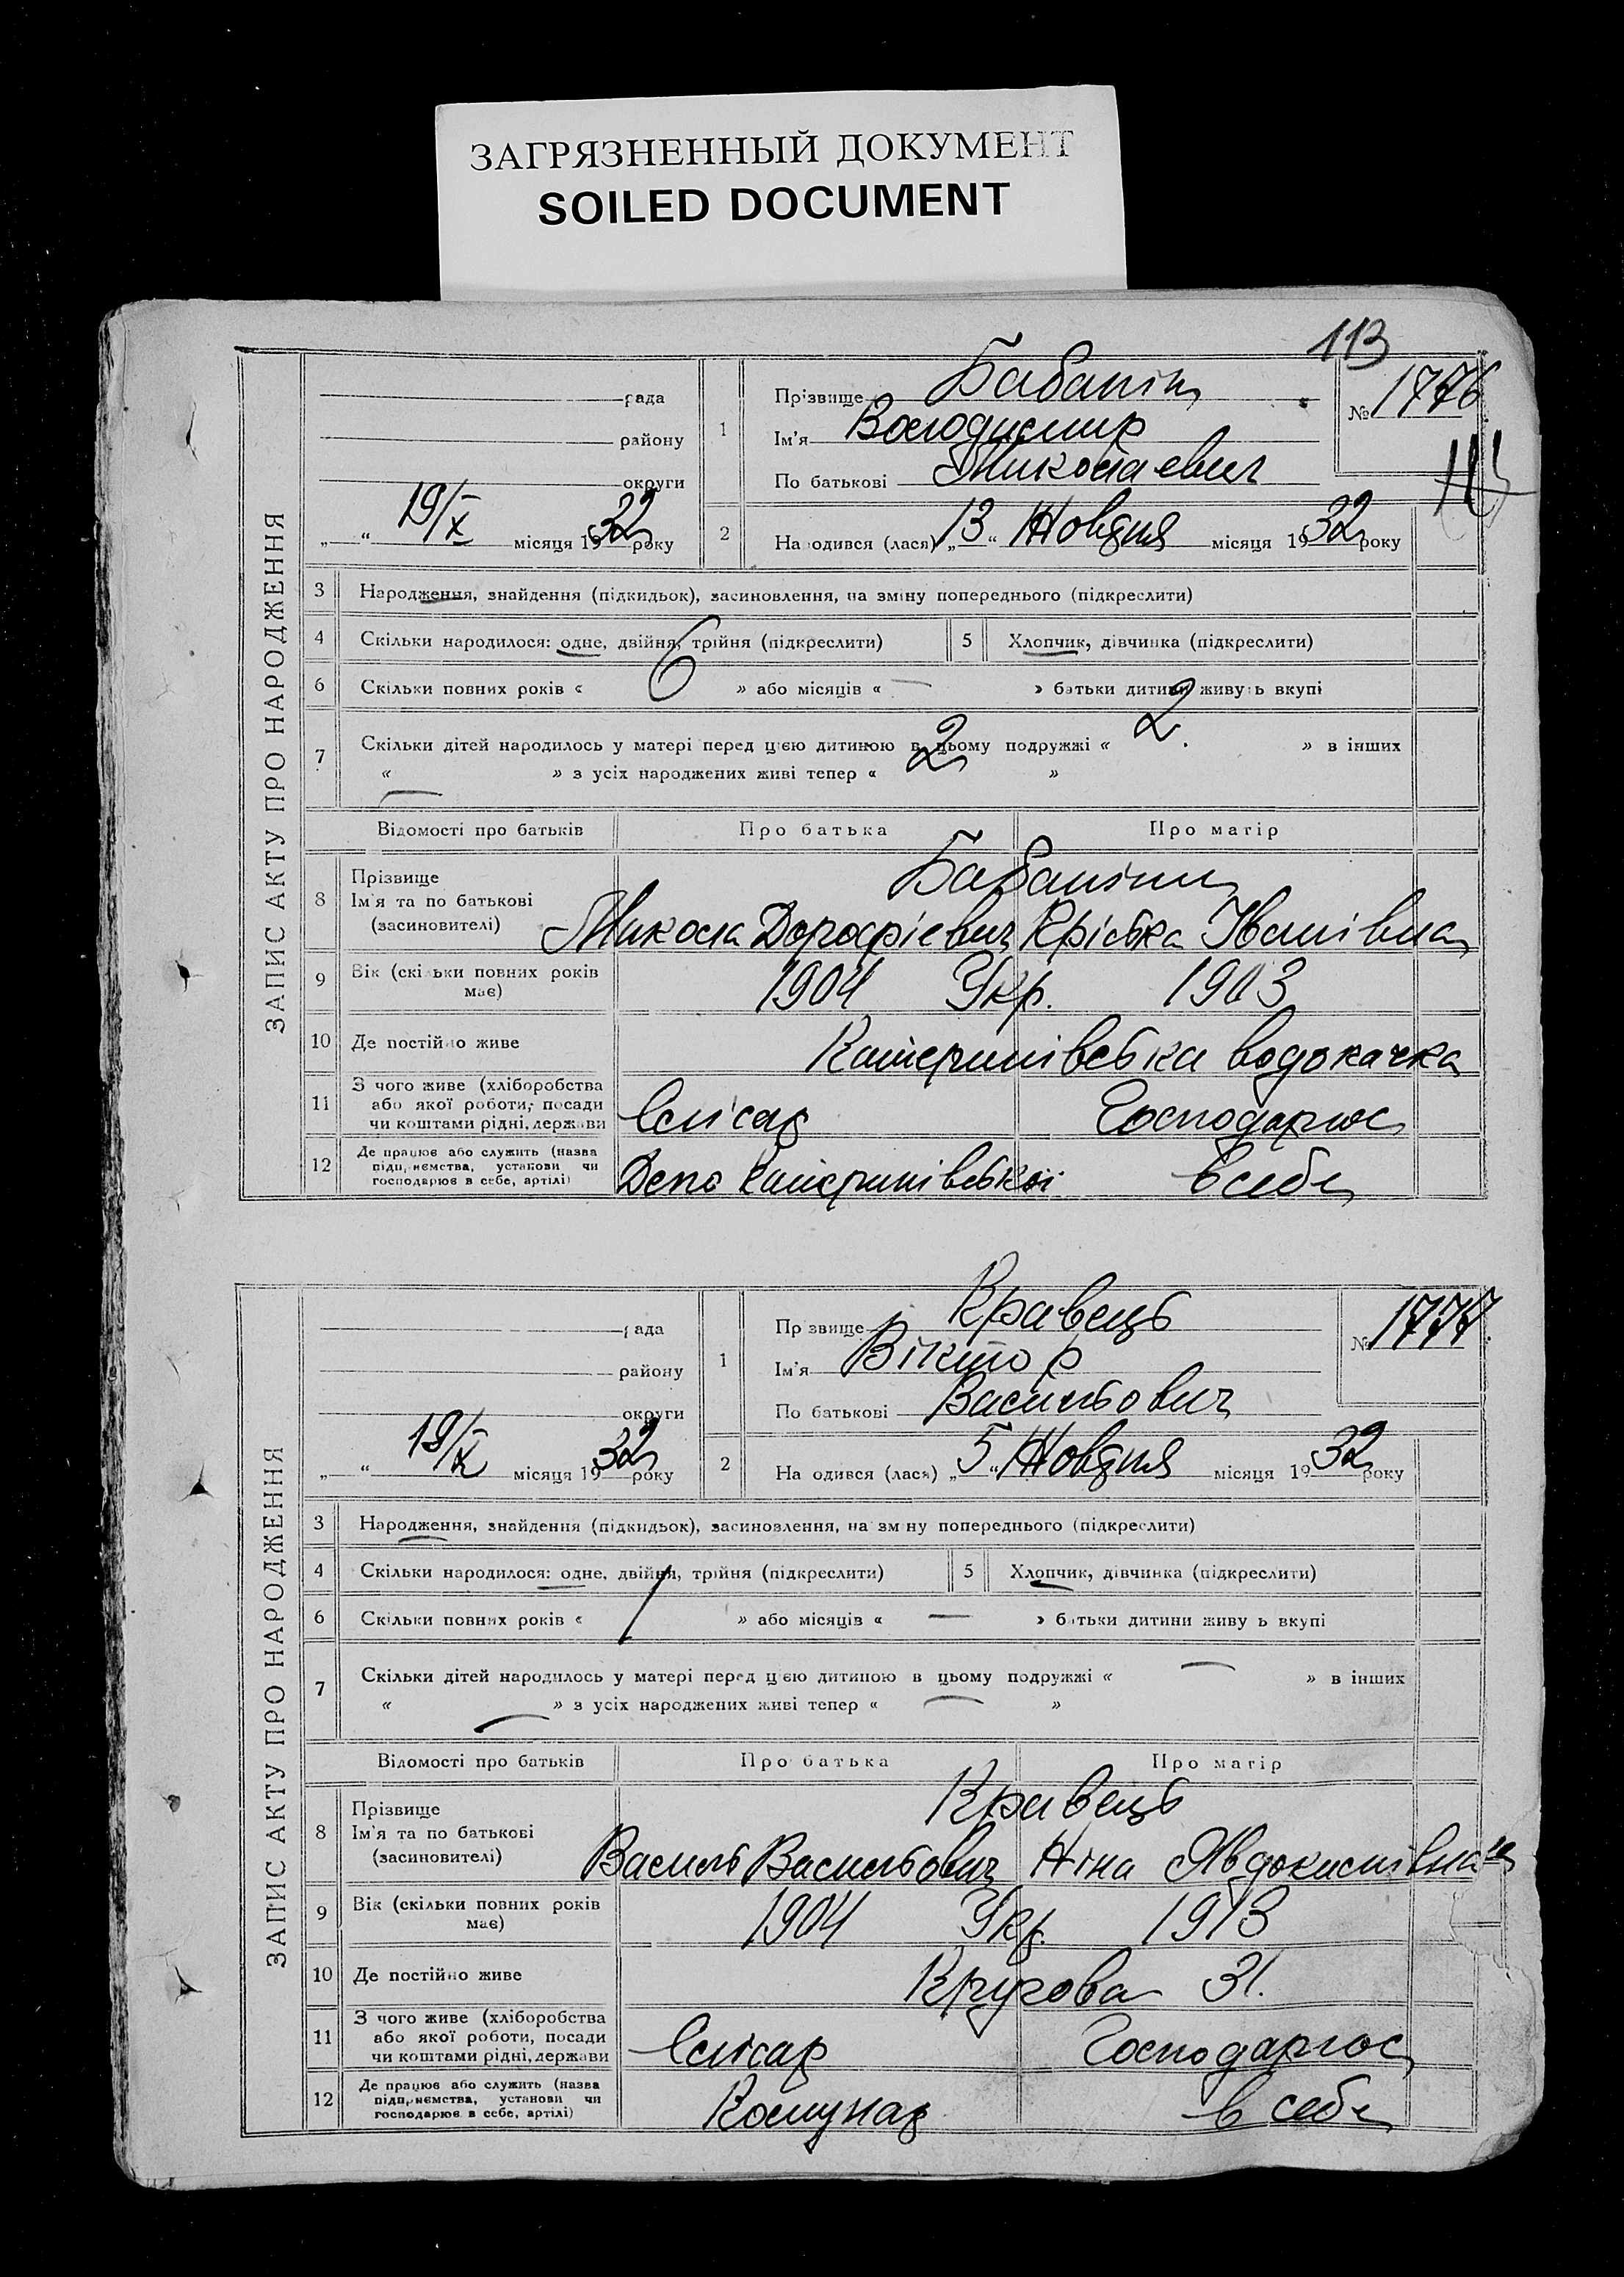 ЗАГРЯЗНЕННЫЙ ДОКУМЕНТ
SOILED DOCUMENT
113
ЗАПИС АКТУ ПРО НАРОДЖЕННЯ
рада
району
округи
„ “ 19/X місяця 1932 року
1
Прізвище Бабанін
Ім'я Володимир
По батькові Миколаевич
№ 1776
2 Народився (лася) „13“ Жовдня місяця 1932 року
3 Народження, знайдення (підкидьок), засиновлення, на зміну попереднього (підкреслити)
4 Скільки народилося: одне, двійня, трійня (підкреслити) 5 Хлопчик, дівчинка (підкреслити)
6 Скільки повних років « 6 » або місяців « — » батьки дитини живуть вкупі
7 Скільки дітей народилось у матері перед цією дитиною в цьому подружжі « 2 » в інших
« — » з усіх народжених живі тепер « 2 »
Відомості про батьків Про батька Про матір
8 Прізвище
Ім'я та по батькові
(засновителі)
Бабаніни
Микола Дорофіевич Крістка Іванівна
9 Вік (скільки повних років має) 1904 Укр. 1903
10 Де постійно живе Катеринівська водокачка
11 З чого живе (хліборобства
або якої роботи, посади
чи коштами рідні, держави
Слісар Господарює
12 Де працює або служить (назва
підприємства, установи чи
господарює в себе, артілі)
Депо Катеринівської в себе
ЗАПИС АКТУ ПРО НАРОДЖЕННЯ
рада
району
округи
„ “ 19/X місяця 1932 року
1
Прізвище Кравець
Ім'я Віктор
По батькові Васильович
№ 1777
2 Народився (лася) „5“ Жовдня місяця 1932 року
3 Народження, знайдення (підкидьок), засиновлення, на зміну попереднього (підкреслити)
4 Скільки народилося: одне, двійня, трійня (підкреслити) 5 Хлопчик, дівчинка (підкреслити)
6 Скільки повних років « 1 » або місяців « — » батьки дитини живуть вкупі
7 Скільки дітей народилось у матері перед цією дитиною в цьому подружжі « — » в інших
« — » з усіх народжених живі тепер « — »
Відомості про батьків Про батька Про матір
8 Прізвище
Ім'я та по батькові
(засиновителі)
Кравець
Василь Васильович Ніна Явдокимівна
9 Вік (скільки повних років має) 1904 Укр. 1913
10 Де постійно живе Кругова 31.
11 З чого живе (хліборобства
або якої роботи, посади
чи коштами рідні, держави
Слісар Господарює
12 Де працює або служить (назва
підприємства, установи чи
господарює в себе, артілі)
Комунар в себе